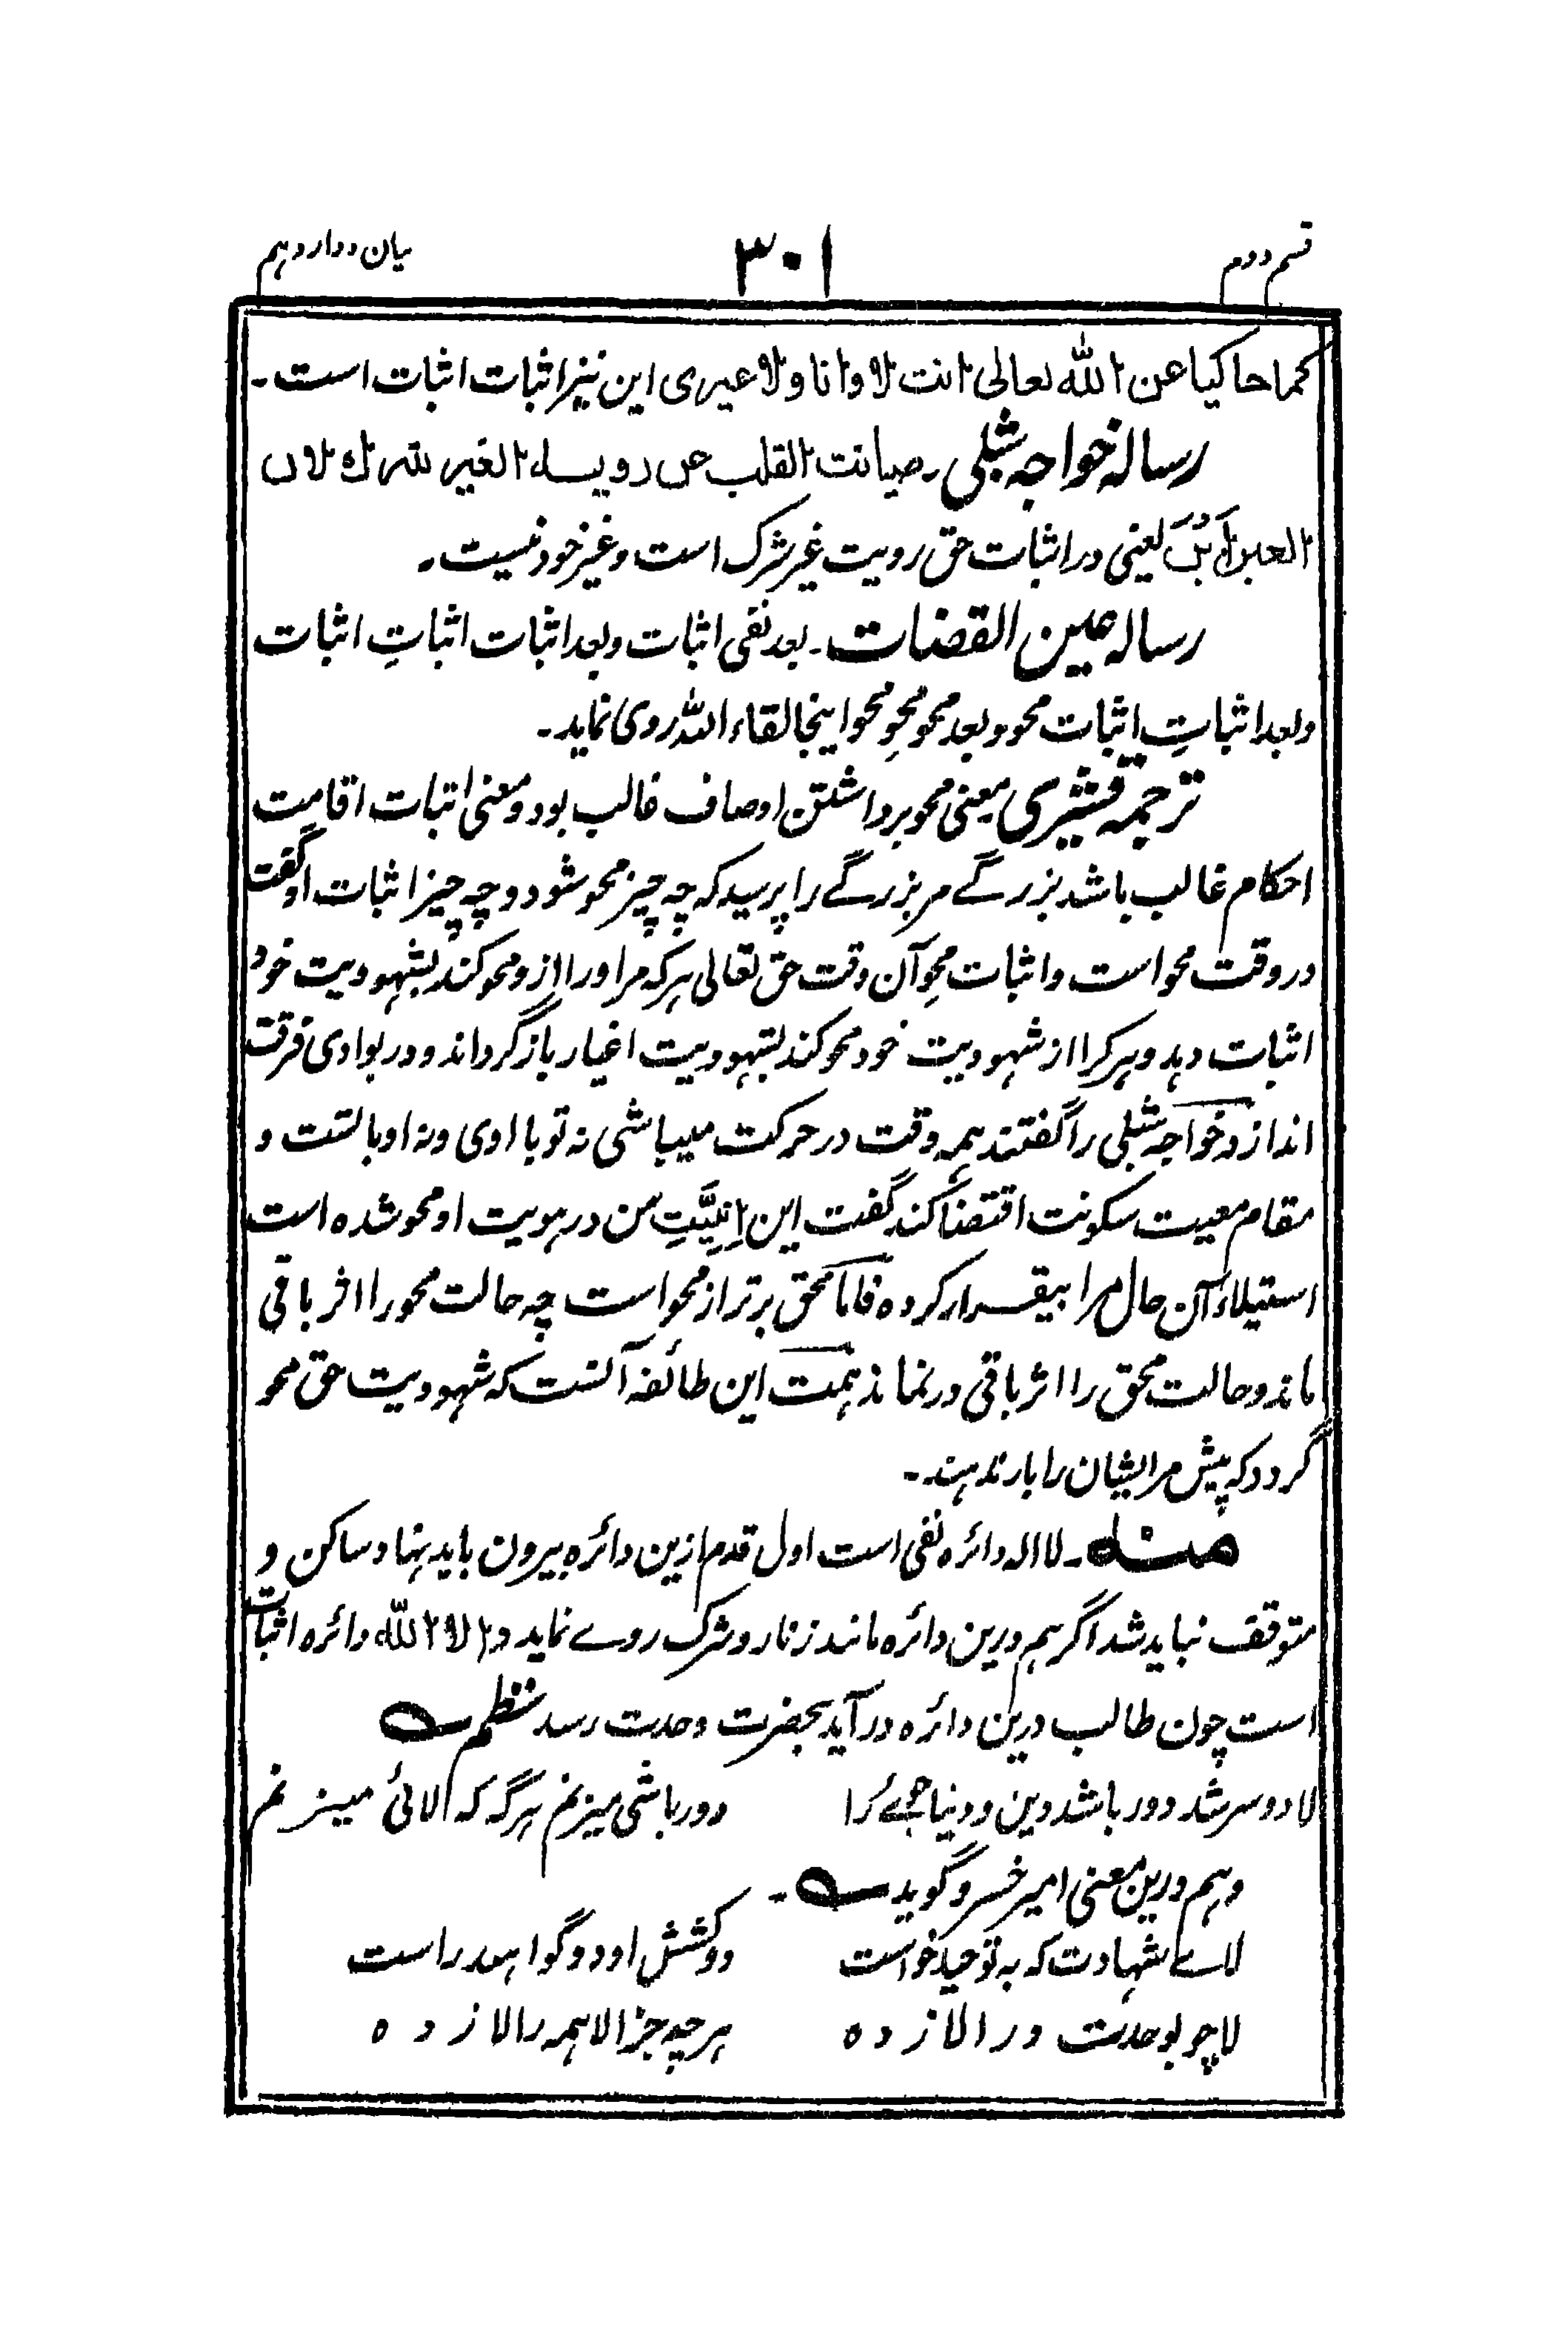 قسم دوم
۳۰۱
بیان دوازدهم
کما حاکیا عن الله تعالی انت لا وانا ولا غیری این نیز اثبات اثبات است۔
رساله خواجه شبلی۔ صیانت القلب عن رویة الغیر شرك لان
الغیر لیس یعنی در اثبات حق رویت غیر شرک است و غیر خود نیست۔
رساله عین القضات۔ بعد نفی اثبات و بعد اثبات اثباتِ اثبات
و بعد اثباتِ اثبات محو و بعد محو محوِ محو اینجا لقاء الله روی نماید۔
ترجمه قشیری معنی محو برداشتن اوصاف غالب بود و معنی اثبات اقامت
احکام غالب باشد بزرگے مر بزرگے را پرسید که چه چیز محو شود و چه چیز اثبات او گفت
در وقت محو است و اثبات محوِ آن وقت حق تعالی هرکه مر اورا از و محو کند بشهودیت خود
اثبات دهد و هر کرا از شهودیت خود محو کند بشهودیت اغیار باز گرداند و در بوادی فرقت
اندازد خواجه شبلی را گفتند همه وقت در حرکت میباشی نه تو با اوی و نه او با تست و
مقام معیت سکونت اقتضا کند گفت این اِنِیَّتِ من در هویت او محو شده است
استیلاء آن حال مرا بیقرار کرده فاما محق برتر از محو است چه حالت محو را اثر باقی
ماند و حالت محق را اثر باقی در نماند همت این طائفه آنست که شهودیت حق محو
گردد که پیش مر ایشان را باز ندهند۔
منه۔ لا اله دائره نفی است اول قدم ازین دائره بیرون باید نهاد و ساکن و
متوقف نباید شد اگر هم درین دائره ماند زنار و شرک روے نماید و الا الله دائره اثبات
است چون طالب درین دائره درآید بحضرت وحدت رسد نظم
لا دو سر شد دور باشد دین و دنیا را دور باشی میزنم هرگه که الائی میزنم
و هم درین معنی امیر خسرو گوید۔
لاے شهادت که به توحید خواست دو کشش او دو گواهند راست
لا چو بوحدت در الا زده هرچه جز الا همه را لا زده